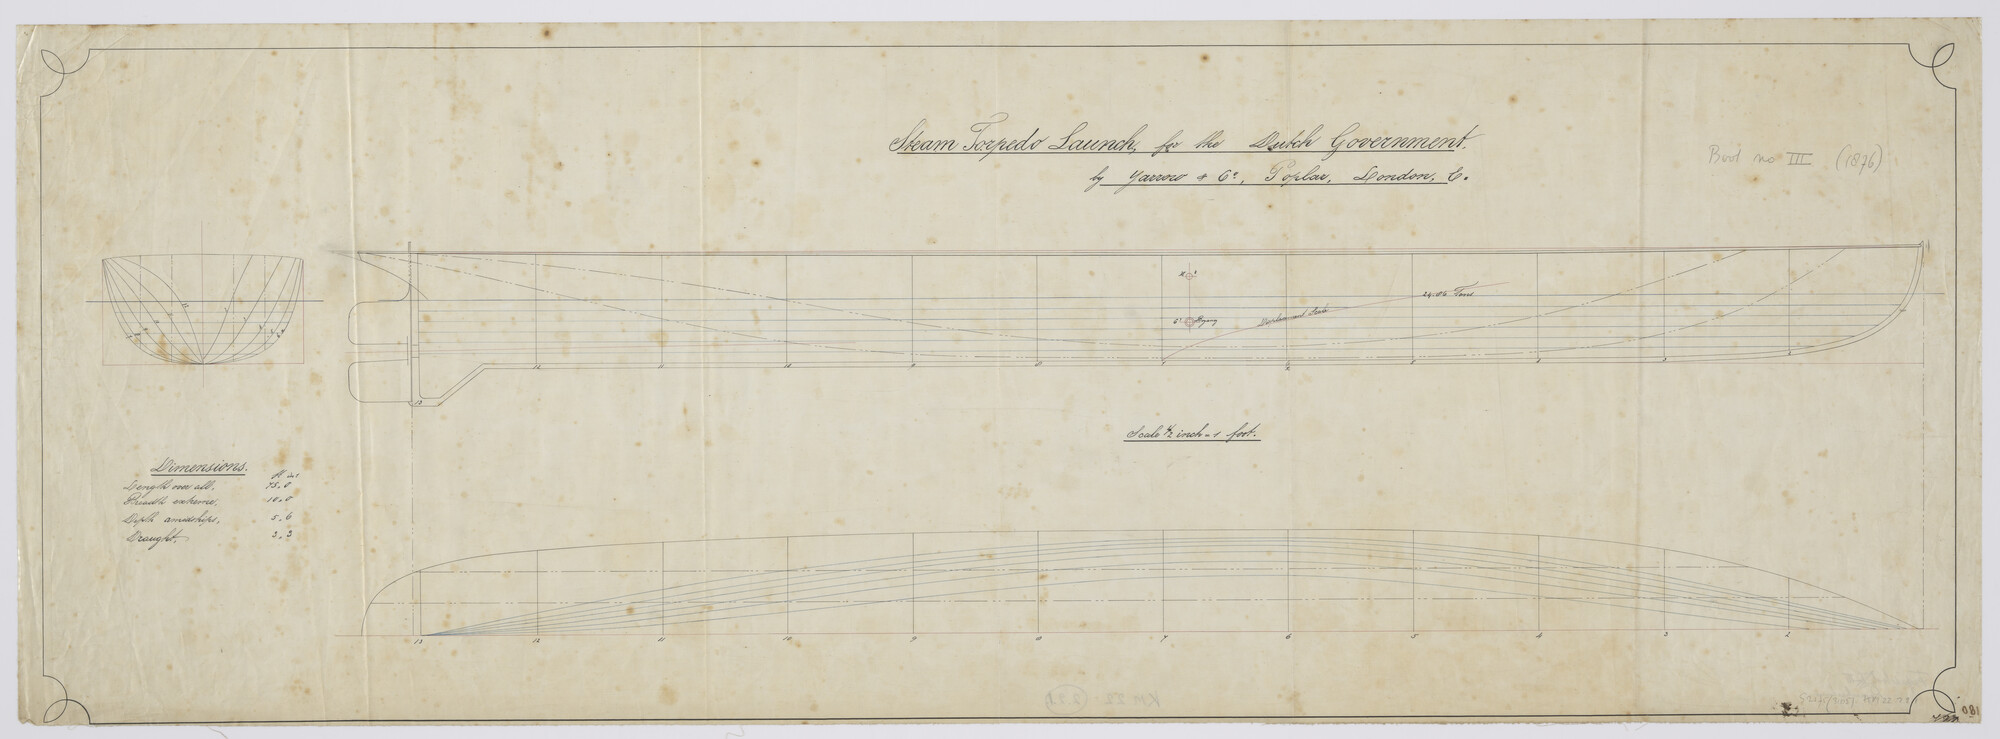 Steam Torpedo Launch, for the Dutch Government.
by Yarrow & Co, Poplar, London, E.
Boot no III (1876)
24.86 Tons
Displacement Scale
13 12 11 10 9 8 7 6 5 4 3 2
Scale 1/2 inch = 1 foot.
Dimensions.
ft ins
Length over all, 75.0
Breadth extreme, 10.0
Depth amidships, 5.6
Draught, 3.3
13 12 11 10 9 8 7 6 5 4 3 2
KM 22
180